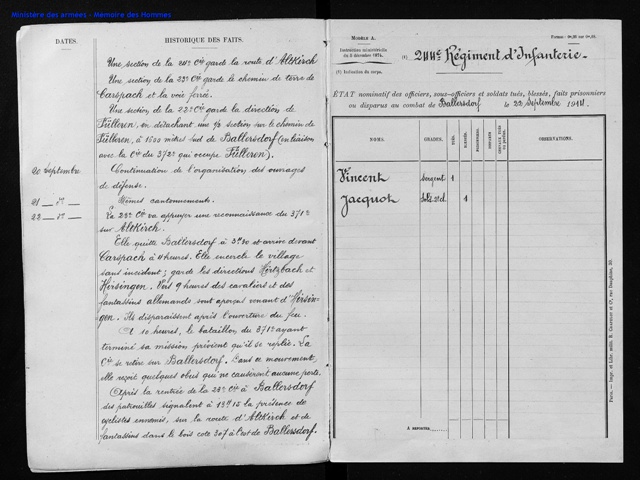 Ministère des armées - Mémoire des Hommes
DATES.
HISTORIQUE DES FAITS.
Une section de la 20e Cie garde la route d'Altkirch
Une section de la 23e Cie garde le chemin de terre de
Carspach et la voie ferrée.
Une section de la 22e Cie garde la direction de
Fülleren, en détachant une 1/2 section sur le chemin de
Fülleren, à 1600 mètres Sud de Ballersdorf (en liaison
avec la Cie du 372e qui occupe Fülleren).
20 Septembre
Continuation de l'organisation des ouvrages
de défense.
21 — do —
Mêmes cantonnements.
22 — do —
La 23e Cie va appuyer une reconnaissance du 371e
sur Altkirch.
Elle quitte Ballersdorf à 3h30 et arrive devant
Carspach à 4 heures. Elle encercle le village
sans incident; garde les directions Hirtzbach et
Hirsingen. Vers 9 heures des cavaliers et des
fantassins allemands sont aperçus venant d'Hirsin-
gen. Ils disparaissent après l'ouverture du feu.
A 10 heures, le bataillon du 371e ayant
terminé sa mission prévient qu'il se replie. La
Cie se retire sur Ballersdorf. Dans ce mouvement,
elle reçoit quelques obus qui ne causèrent aucune perte.
Après la rentrée de la 23e Cie à Ballersdorf
des patrouilles signalent à 13h15 la présence de
cyclistes ennemis, sur la route d'Altkirch et de
fantassins dans le bois cote 307 à l'est de Ballersdorf.
MODÈLE A.
Instruction ministérielle
du 5 décembre 1874.
(1) Indication du corps.
(1) 244e Régiment d'Infanterie
ÉTAT nominatif des officiers, sous-officiers et soldats tués, blessés, faits prisonniers
ou disparus au combat de Ballersdorf le 22 Septembre 1914.
NOMS.
GRADES.
TUÉS.
BLESSÉS.
PRISONNIERS.
DISPARUS.
OBSERVATIONS.
Vincent
Sergent
1
Jacquot
Sold. 2e cl.
1
A REPORTER.